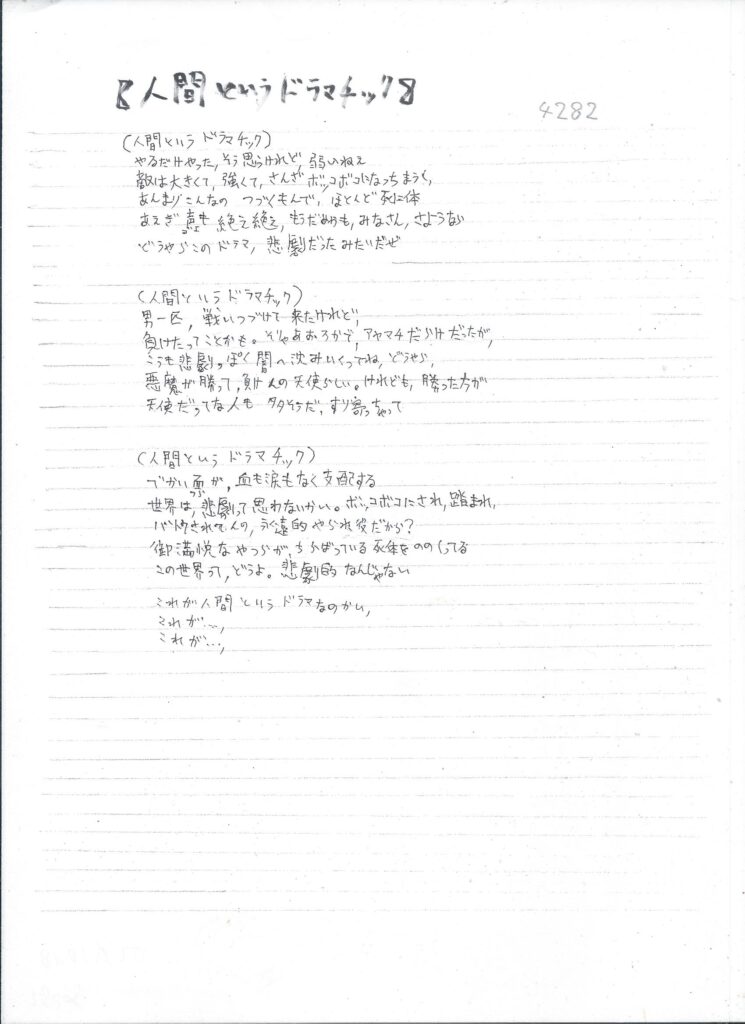 【人間というドラマチック】
4282
(人間という ドラマチック)
やるだけやった, そう思うけれど, 弱いねえ
敵は大きくて, 強くて, さんざ ボッコボコになっちまうし,
あんまりこんなの つづくもんで, ほとんど死に体
あえぎ声も 絶え絶え, もうだめかも, みなさん, さようなら
どうやらこのドラマ, 悲劇だったみたいだぜ
(人間という ドラマチック)
男一匹, 戦いつづけて 来たけれど,
負けたってことかも。そりゃあおろかで, アヤマチだらけだったが,
こうも悲劇っぽく 闇へ沈みいくってね, どうやら,
悪魔が勝って, 負け人の天使らしい。けれども, 勝った方が
天使だってな人も 多そうだ, すり寄っちゃって
(人間という ドラマチック)
でかい面が, 血も涙もなく支配する
づら
世界は, 悲劇って思わないかい。ボッコボコにされ, 踏まれ,
バトウされて人の, 永遠的 やられ役だから?
御満悦な やつらが, ちらばっている 死体をののしってる
この世界って, どうよ。悲劇的 なんじゃない
これが人間という ドラマなのかい,
これが…,
これが…,